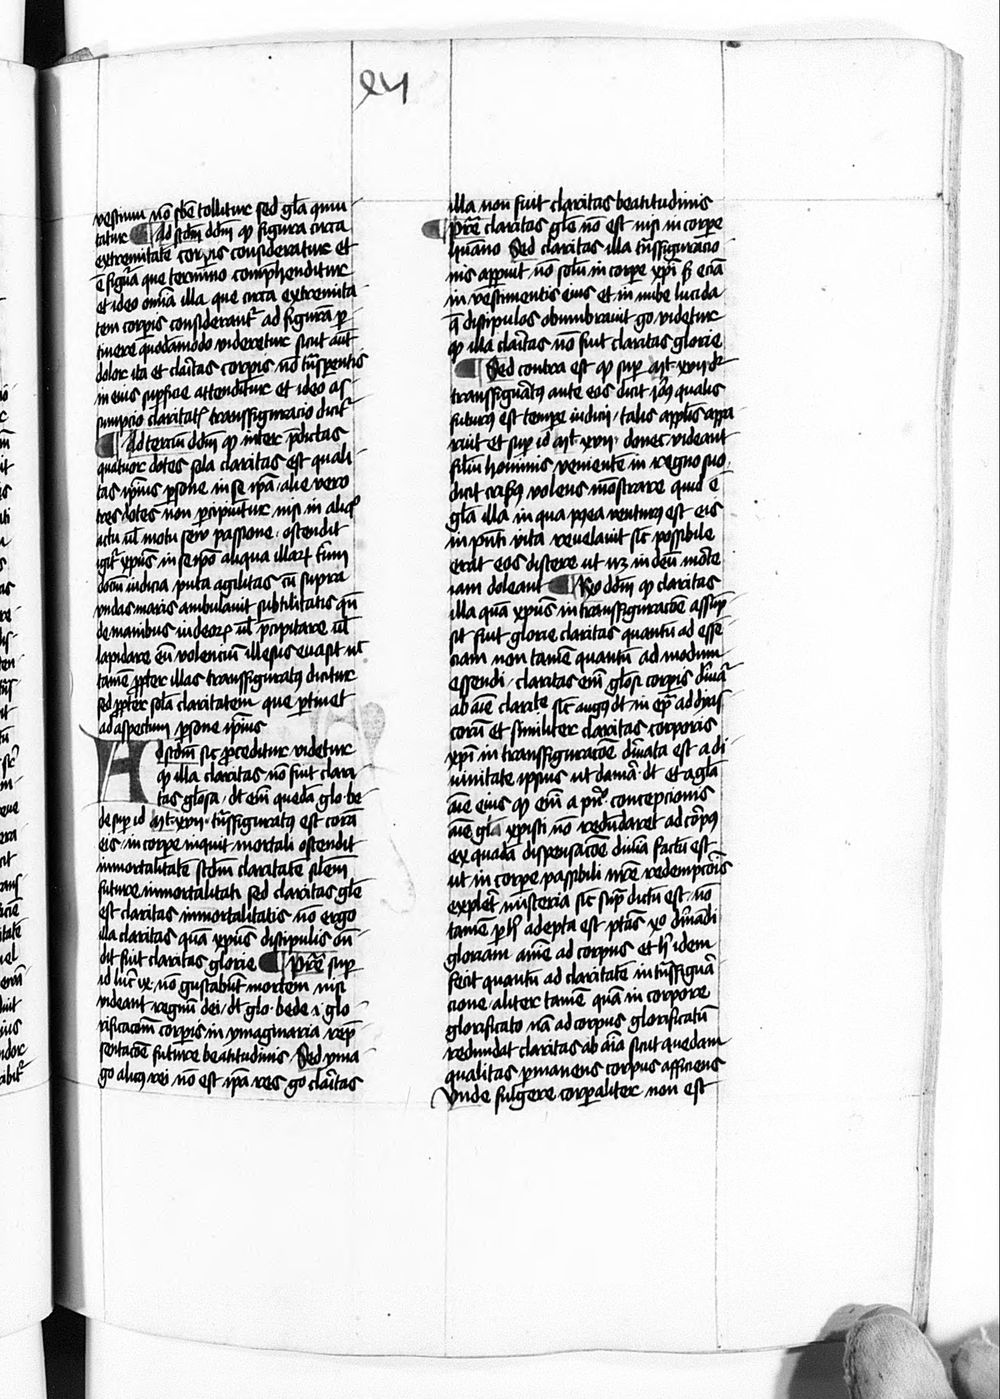 xly
vestimm nō sbē tollitur sed gl̄a quiu
tatur Ad scd̄m dd̄m qͦ figura circa
extremitatē corpis consideratur et
ē figūa que termino comp̄henditur
et ideo om̄ia illa que circa extremita
tem corpis considerant᷑ ad figurā p̱
tinere quodāmodo videretur sicut aut̄
dolor ita et clar̄itas corpis nō trn̄sparentis
in eius sup̄ficie attenditur et ideo as
sumpcio claritat᷑ transfiguracio dicit᷑
Ad terciū dd̄m qͦ inter p̄dictas
quatuor dotes sola claritas est quali
tas ip̄ius p̱sone in se ip̄a alie vero
tres dotes non p̱cipiuntur nisi in aliqͦ
actu ul̄ motu seu passione ostendit
igit᷑ xp̄us in seip̄o aliqua illaꝝ
dotū indicia puta agilitas cū supra
vndas maris ambulauit subtilitatis qn̄
de manibus iudeoꝝ ul̄ p̄cipitare ul̄
lapidare eū volenciū illesus euasit nec
tamē pp̄ter illas transfiguratꝰ dicitur
sed pp̄ter solā claritatem que p̱tinet
ad aspectum p̱sone ip̄ius
Ad scd̄m sic p̱ceditur videtur
qͦ illa claritas nō fuit clari
tas gl̄osa dt̄ em̄ quedā glo be
de sup̱ id Mt xvii trn̄sfiguratꝰ est corā
eis in corpe inquit mortali ostendit
inmortalitatē scd̄m claritatē sil̄em
future inmortalitati sed claritas gl̄e
est claritas inmortalitatis nō ergo
illa claritas quā xp̄us discipulis on̄
dit fuit claritas glorie Pret̄e sup̱
id luc̄ ix nō gustabūt mortem nisi
videant regnū dei dt̄ glo bede i glo
rificacōm corpis in ymaginaria rep̄
sentacōe future beatitudinis Sed yma
go alicꝰ rei nō est ip̄a res go clar̄itas
illa non fuit claritas beatitudinis
Pret̄e claritas gl̄e nō est nisi in corpe
humano Sed claritas illa trn̄sfiguracio
nis apparuit nō solū in corpe xp̄i s̄ eciā
in vestimentis eius et in nube lucida
q̄ discipulos obumbrauit go videtur
qͦ illa clar̄itas nō fuit claritas glorie
Sed contra est qͦ sup̱ Mt xvii dr̄
transfiguratꝰ ante eos dicit Jer̄oꝰ qualis
futurus est tempe iudicii talis apl̄is appa
ruit et sup̱ id Mt xvii donec videant
filiū hominis venientē in regno suo
dicit crisoꝰ volens mōstrare quid ē
gl̄a illa in qua p̱ea venturꝰ est eis
in p̄nti vita reuelauit sic possibile
erat eos discere ut nꝫ in dn̄i morte
iam doleant Rͦ dd̄m qͦ claritas
illa quā xp̄us in transfiguracōe assūp
sit fuit glorie claritas quantū ad essē
ciam non tamē quantū ad modum
essendi claritas em̄ gl̄osi corpis d̄riuat᷑
ab aīe clarite sic augꝰ dt̄ in ep̄a ad dyas
corū et similiter claritas corporis
xp̄i in transfiguracōe d̄riuata est a di
uinitate ipsius ut dama dt̄ et a gl̄a
aīe eius qͦ em̄ a pn̄ͦ concepcionis
aīe gl̄a xpisti nō redundaret ad corpꝰ
ex quadā dispensacōe diuīa factū est
ut in corpe passibili nr̄e redempcōis
explet᷑ misteria sic sup̄ dictū est nō
tamē p̱ h̄ adepta est ptās xo d̄riuādi
gloriam aīme ad corpus et h̄ idem
fecit quantū ad claritatē in trn̄sfigura
cione aliter tamē quā in corpore
glorificato nā ad corpus glorificatū
redundat claritas ab aīa sicut quedam
qualitas p̱manens corpus afficiens
vnde fulgere corp̱aliter non est